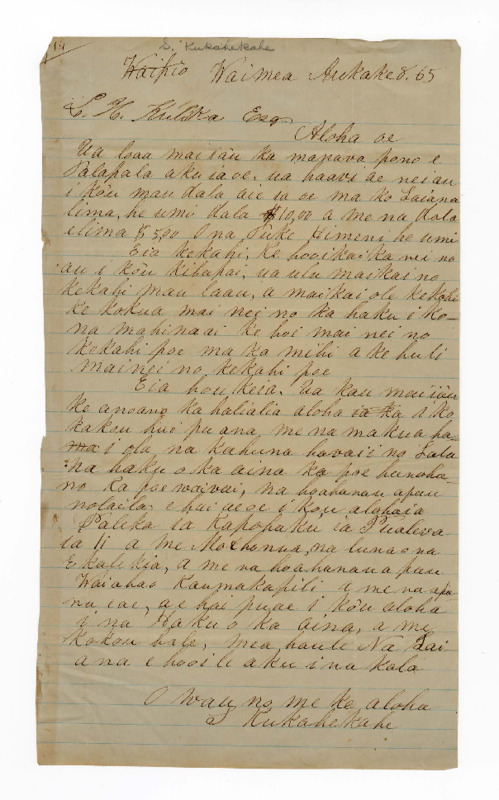 S. Kukahekahe
Waipio Waimea Aukake 8. 65
L. H. Kulika Esq
Aloha oe
Ua loaa mai iau ka manava pono e
Palapala aku ia oe. ua haavi ae nei au
i kou mau dala aie ia oe ma ko Laiana
lima, he umi dala $10,00 a me na dala
elima $5,00 O na Puke Himeni he umi
Eia kekahi, Ke hooikaika nei no
au i kou kihapai, ua ulu maikai no
kekahi mau laau, a maikai ole kekahi
ke kokua mai nei no ka haku i ko-
na mahinaai ke hoi mai nei no
kekahi poe ma ka mihi a ke huli
mai nei no, kekahi poe
Eia hou keia. Ua kau mai iau
ke anoano ka halialia aloha ia ka i ko
kakou hui pu ana, me na makua ha-
i ola, na kahuna havaii no
na haku o ka aina ka poe hanoha-
no ka poe waivai, na hoahanau apau
nolaila, e hai aeoe i kou aloha ia
Paleka ia Kapohaku ia Pualeva
ia Ii a me na lunaona
Ekalekia, a me na hoahanau apau
Waiahao Kaumakapili e me na apa
na eae, a e hai pu ae i kou aloha
i na Haku o ka aina, a me
kokou hale, mea, haule Na Lai
ana e hooili aku i na kala
O wau no me ke aloha
S Kukahekahe